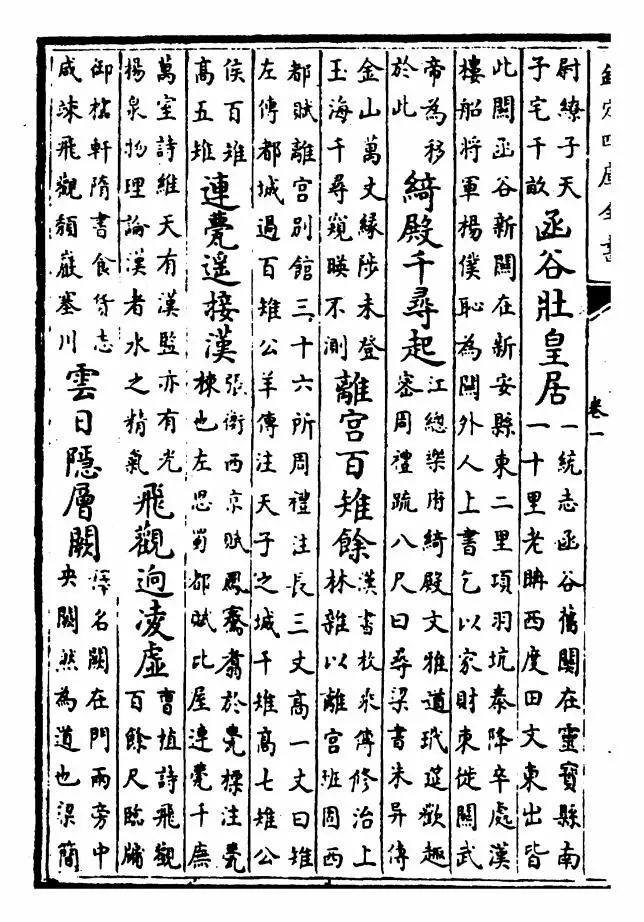 欽定四庫全書 卷一
尉繚子天子宅千畝函谷壯皇居一統志函谷舊關在靈寳縣南一十里老聃西度田文東出皆
此關函谷新關在新安縣東二里項羽坑秦降卒處漢樓船將軍楊僕恥為關外人上書乞以家財東徙關武
帝為移於此綺殿千尋起江總樂府綺殿文雅道玳筵歡趣密周禮疏八尺曰尋梁書朱异傳
金山萬丈縁陟未登玉海千尋窺暎不測離宮百雉餘漢書枚乘傳修治上林雜以離宮班固西
都賦離宮别館三十六所周禮注長三丈高一丈曰雉左傳都城過百雉公羊傳注天子之城千雉高七雉公
侯百雉高五雉連甍遥接漢張衡西京賦鳳騫翥於甍標注甍棟也左思蜀都賦比屋連甍千廡
萬室詩維天有漢監亦有光楊泉物理論漢者水之精氣飛觀迥凌虛曹植詩飛觀百餘尺臨牖
御櫺軒隋書食貨志咸竦飛觀頽巖塞川雲日隱層闕釋名闕在門兩旁中央闕然為道也梁簡